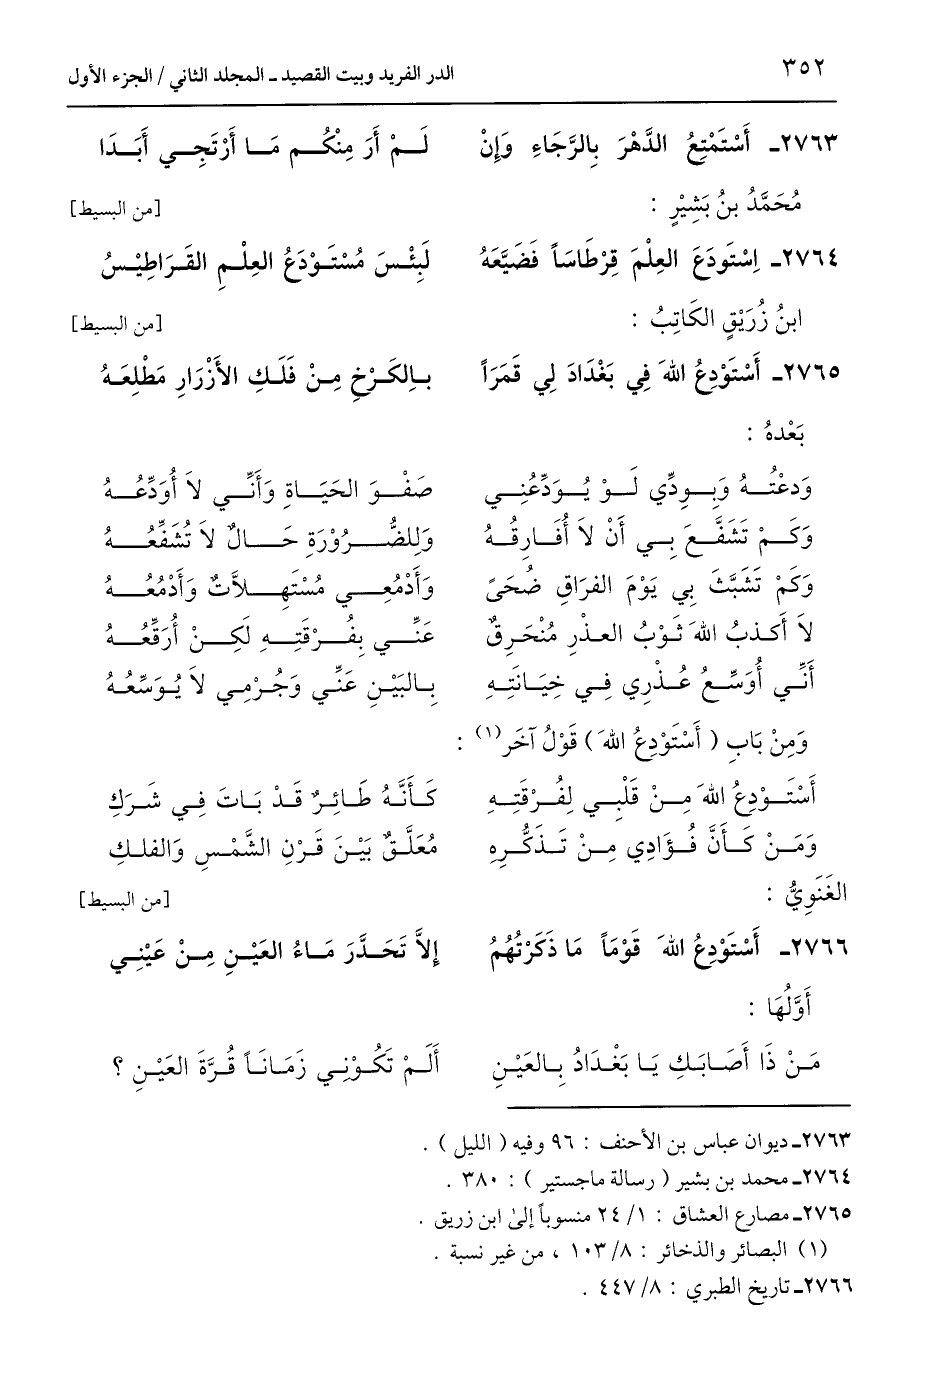 ٣٥٢ الدر الفريد وبيت القصيد ـ المجلد الثاني / الجزء الأول
٢٧٦٣ـ أَسْتَمْتِعُ الدَّهْرَ بِالرَّجَاءِ وَإِنْ لَـمْ أَرَ مِنْكُـم مَـا أَرْتَجِـي أَبَـدَا
مُحَمَّدُ بنُ بَشِيْرٍ : [من البسيط]
٢٧٦٤ـ اِسْتَودَعَ العِلْمَ قِرْطَاسَاً فَضَيَّعَهُ لَبِئْـسَ مُسْتَـوْدَعُ العِلْـمِ القَـرَاطِيْـسُ
ابنُ زُرَيْقٍ الكَاتِبُ : [من البسيط]
٢٧٦٥ـ أَسْتَوْدِعُ اللهَ فِي بَغْدَادَ لِي قَمَرَاً بـالكَـرْخِ مِـنْ فَلَـكِ الأَزْرَارِ مَطْلِعَـهُ
بَعْدهُ :
وَدعْتُـــهُ وَبِـودِّي لَـوْ يُـوَدِّعُنِـي صَفْـوَ الحَيَـاةِ وَأَنِّـي لاَ أُوَدِّعُـــهُ
وَكَـمْ تَشَفَّـعَ بِـي أَنْ لاَ أُفَـارِقُـهُ وَلِلضُّـرُوْرَةِ حَـالٌ لاَ تُشَفِّعُـهُ
وَكَمْ تَشَبَّثَ بِي يَوْمَ الفرَاقِ ضُحَىً وَأَدْمُعِـي مُسْتَهِـلاَّتٌ وَأَدْمُعُـهُ
لاَ أَكـذبُ اللهَ ثَـوْبُ العـذرِ مُنْخَرِقٌ عَنِّـي بِفُـرْقَتِـهِ لَكِـنْ أُرَقِّعُـهُ
أَنِّـي أُوَسِّـعُ عُـذْرِي فِـي خِيَـانَتِـهِ بِـالبَيْـنِ عَنِّي وَجُرْمِي لاَ يُـوَسِّعُـهُ
وَمِنْ بَابِ ( أَسْتَودِعُ اللهَ ) قَوْلُ آخَر(١) :
أَسْتَـوْدِعُ اللهَ مِـنْ قَلْبِـي لِفُـرْقَتِـهِ كَـأَنَّـهُ طَـائِـرٌ قَـدْ بَـاتَ فِـي شَرَكِ
وَمَـنْ كَـأَنَّ فُـؤَادِي مِـنْ تَـذَكُّـرِهِ مُعَلَّـقٌ بَيْـنَ قَـرْنِ الشَّمْـسِ وَالفلـكِ
الغَنَوِيُّ : [من البسيط]
٢٧٦٦ـ أَسْتَودِعُ اللهَ قَوْمَاً مَا ذَكَرْتُهُمُ إِلاَّ تَحَـدَّرَ مَـاءُ العَيْـنِ مِـنْ عَيْنِـي
أَوَّلُهَا :
مَـنْ ذَا أَصَـابَـكِ يَـا بَغْـدَادُ بِـالعَيْـنِ أَلَـمْ تَكُـوْنِـي زَمَـانَـاً قُـرَّةَ العَيْـنِ ؟
٢٧٦٣ـ ديوان عباس بن الأحنف : ٩٦ وفيه ( الليل ) .
٢٧٦٤ـ محمد بن بشير ( رسالة ماجستير ) : ٣٨٠ .
٢٧٦٥ـ مصارع العشاق : ١/ ٢٤ منسوباً إلىٰ ابن زريق .
(١) البصائر والذخائر : ٨/ ١٠٣ ، من غير نسبة .
٢٧٦٦ـ تاريخ الطبري : ٨/ ٤٤٧ .